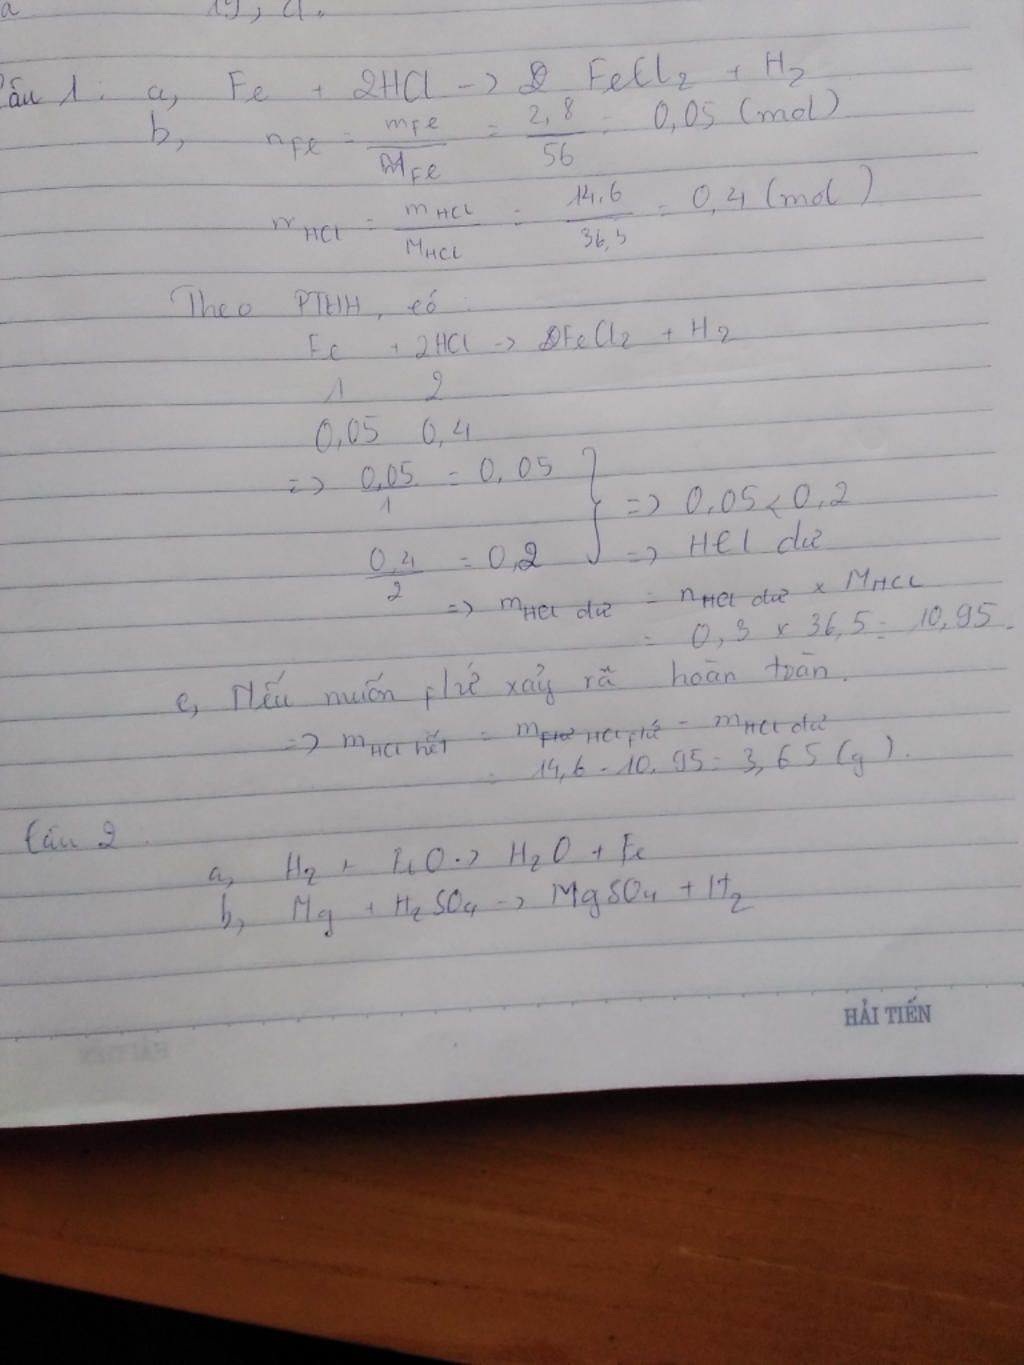 a 19, d.
Câu 1: a, Fe + 2HCl -> FeCl2 + H2
b, nFe = mFe / MFe = 2,8 / 56 = 0,05 (mol)
nHCl = mHCl / MHCl = 14,6 / 36,5 = 0,4 (mol)
Theo PTHH, có:
Fe + 2HCl -> FeCl2 + H2
1 2
0,05 0,4
=> 0,05 / 1 = 0,05
=> 0,05 < 0,2
0,4 / 2 = 0,2
=> HCl dư
=> mHCl dư = nHCl dư x MHCl
= 0,3 x 36,5 = 10,95.
c, Nếu muốn phứ xảy rã hoàn toàn.
=> mHCl hết = mHCl phứ - mHCl dư
= 14,6 - 10,95 = 3,65 (g).
Câu 2.
a, H2 + FeO -> H2O + Fe
b, Mg + H2SO4 -> MgSO4 + H2
HẢI TIẾN